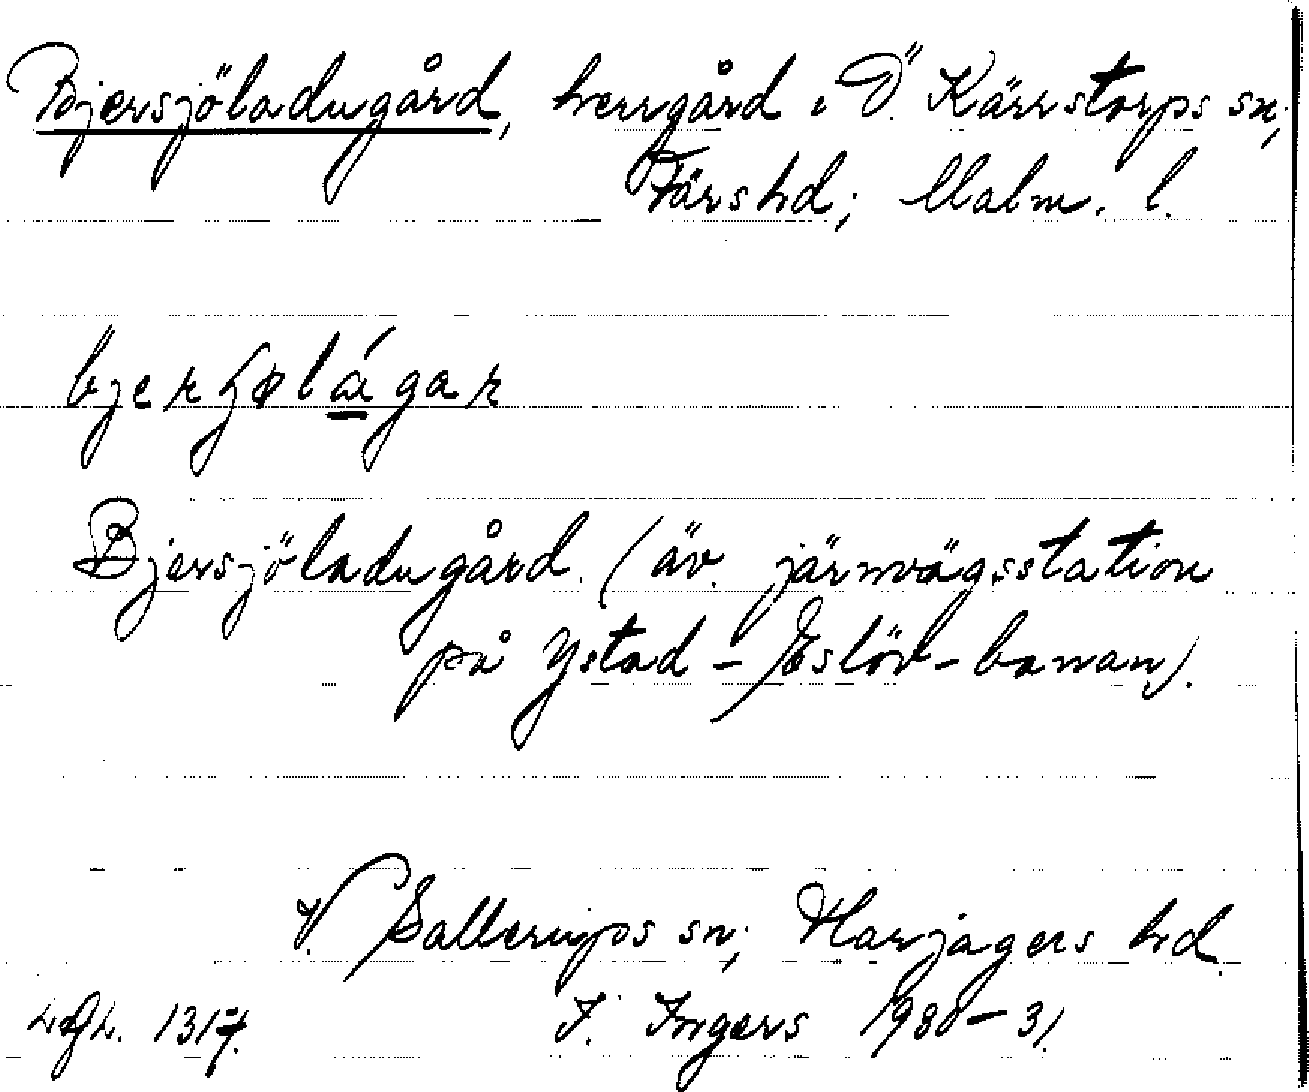 Bjersjöladugård, herrgård i Ö. Kärrstorps sn;
Färs hd; Malm. l.
Bjersjöladugård. (äv. järnvägsstation
på Ystad - Eslöv - banan).
V. Sallerups sn; Harjagers hd.
1317. I. Ingers 1930-31